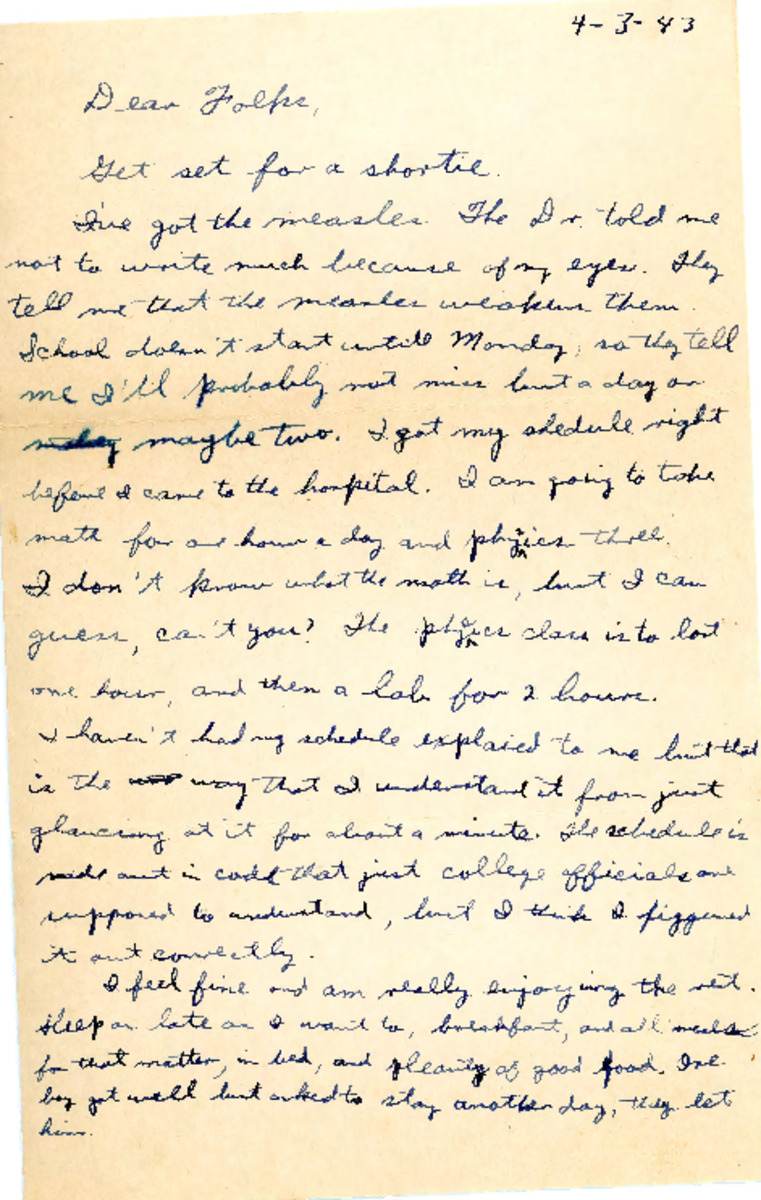 4-3-43
Dear Folks,
Get set for a shortie.
I've got the measles. The Dr. told me
not to write much because of my eyes. They
tell me that the measles weakens them.
School doesn't start until Monday, so they tell
me I'll probably not miss but a day or
maybe two. I got my shedule right
before I came to the hospital. I am going to take
math for one hour a day and physics three.
I don't know what the math is, but I can
guess, can't you? The physics class is to last
one hour, and then a lab for 2 hours.
I haven't had my schedule explaied to me but that
is the way that I understand it from just
glancing at it for about a minute. The schedule is
made out in code that just college officials are
supposed to understand, but I think I figgered
it out correctly.
I feel fine and am really enjoying the rest.
Sleep as late as I want to, breakfast, and all meals
for that matter, in bed, and pleanty of good food. One
boy got well but asked to stay another day, they let
him.